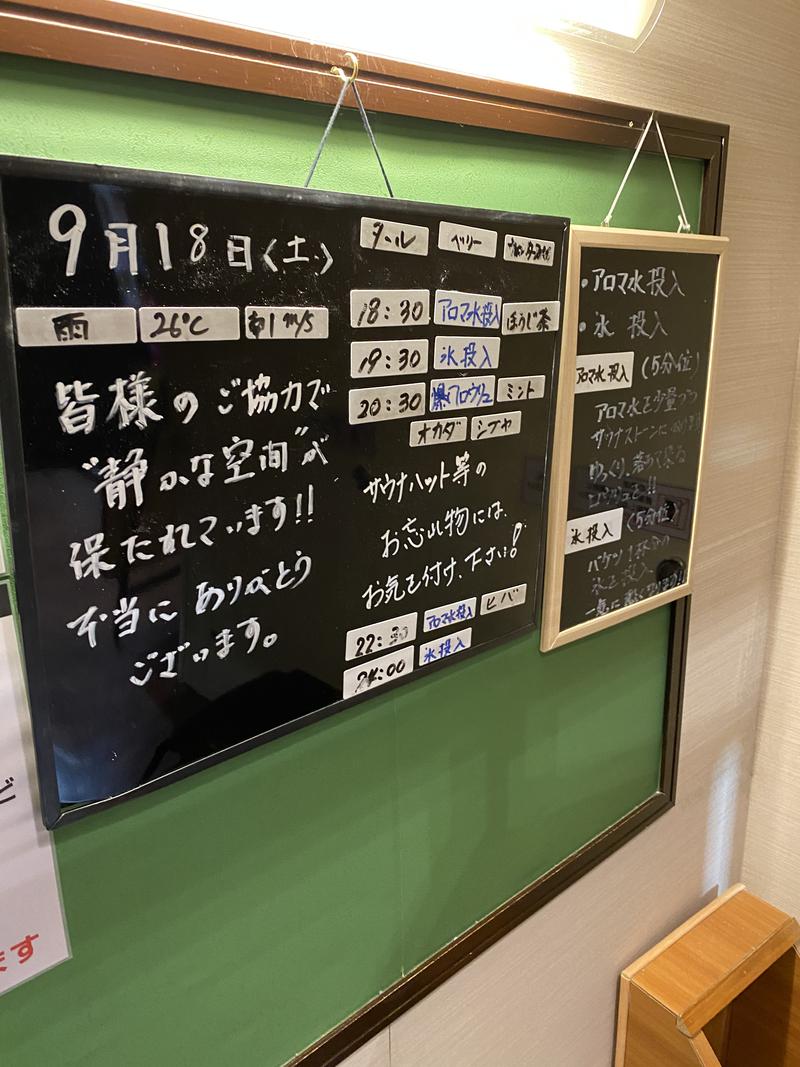 9月18日〈土〉
雨 26℃ 南1m/s
皆様のご協力で
"静かな空間"が
保たれています!!
本当にありがとう
ございます。
タール ベリー
18:30 アロマ水投入 ほうじ茶
19:30 氷投入
20:30 爆アロウリュ ミント
オカダ シブヤ
サウナハット等の
お忘れ物には、
お気を付け下さい!
22:30 アロマ水投入 ヒバ
24:00 氷投入
・アロマ水投入
・氷 投入
アロマ水投入 (5分位)
アロマ水を少量づつ
サウナストーンに
ゆっくり、
氷投入 (5分位)
バケツ1杯分の
氷を投入
ど
ます